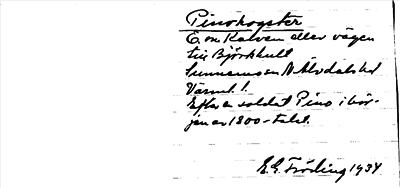 Pinohogster
E. om Kalven eller vägen
till Björkhult
Sunnemo sn N Älvdals hd
Värml. l.
Efter en soldat Pino i bör-
jan av 1800-talet.
E. G. Fröding 1934